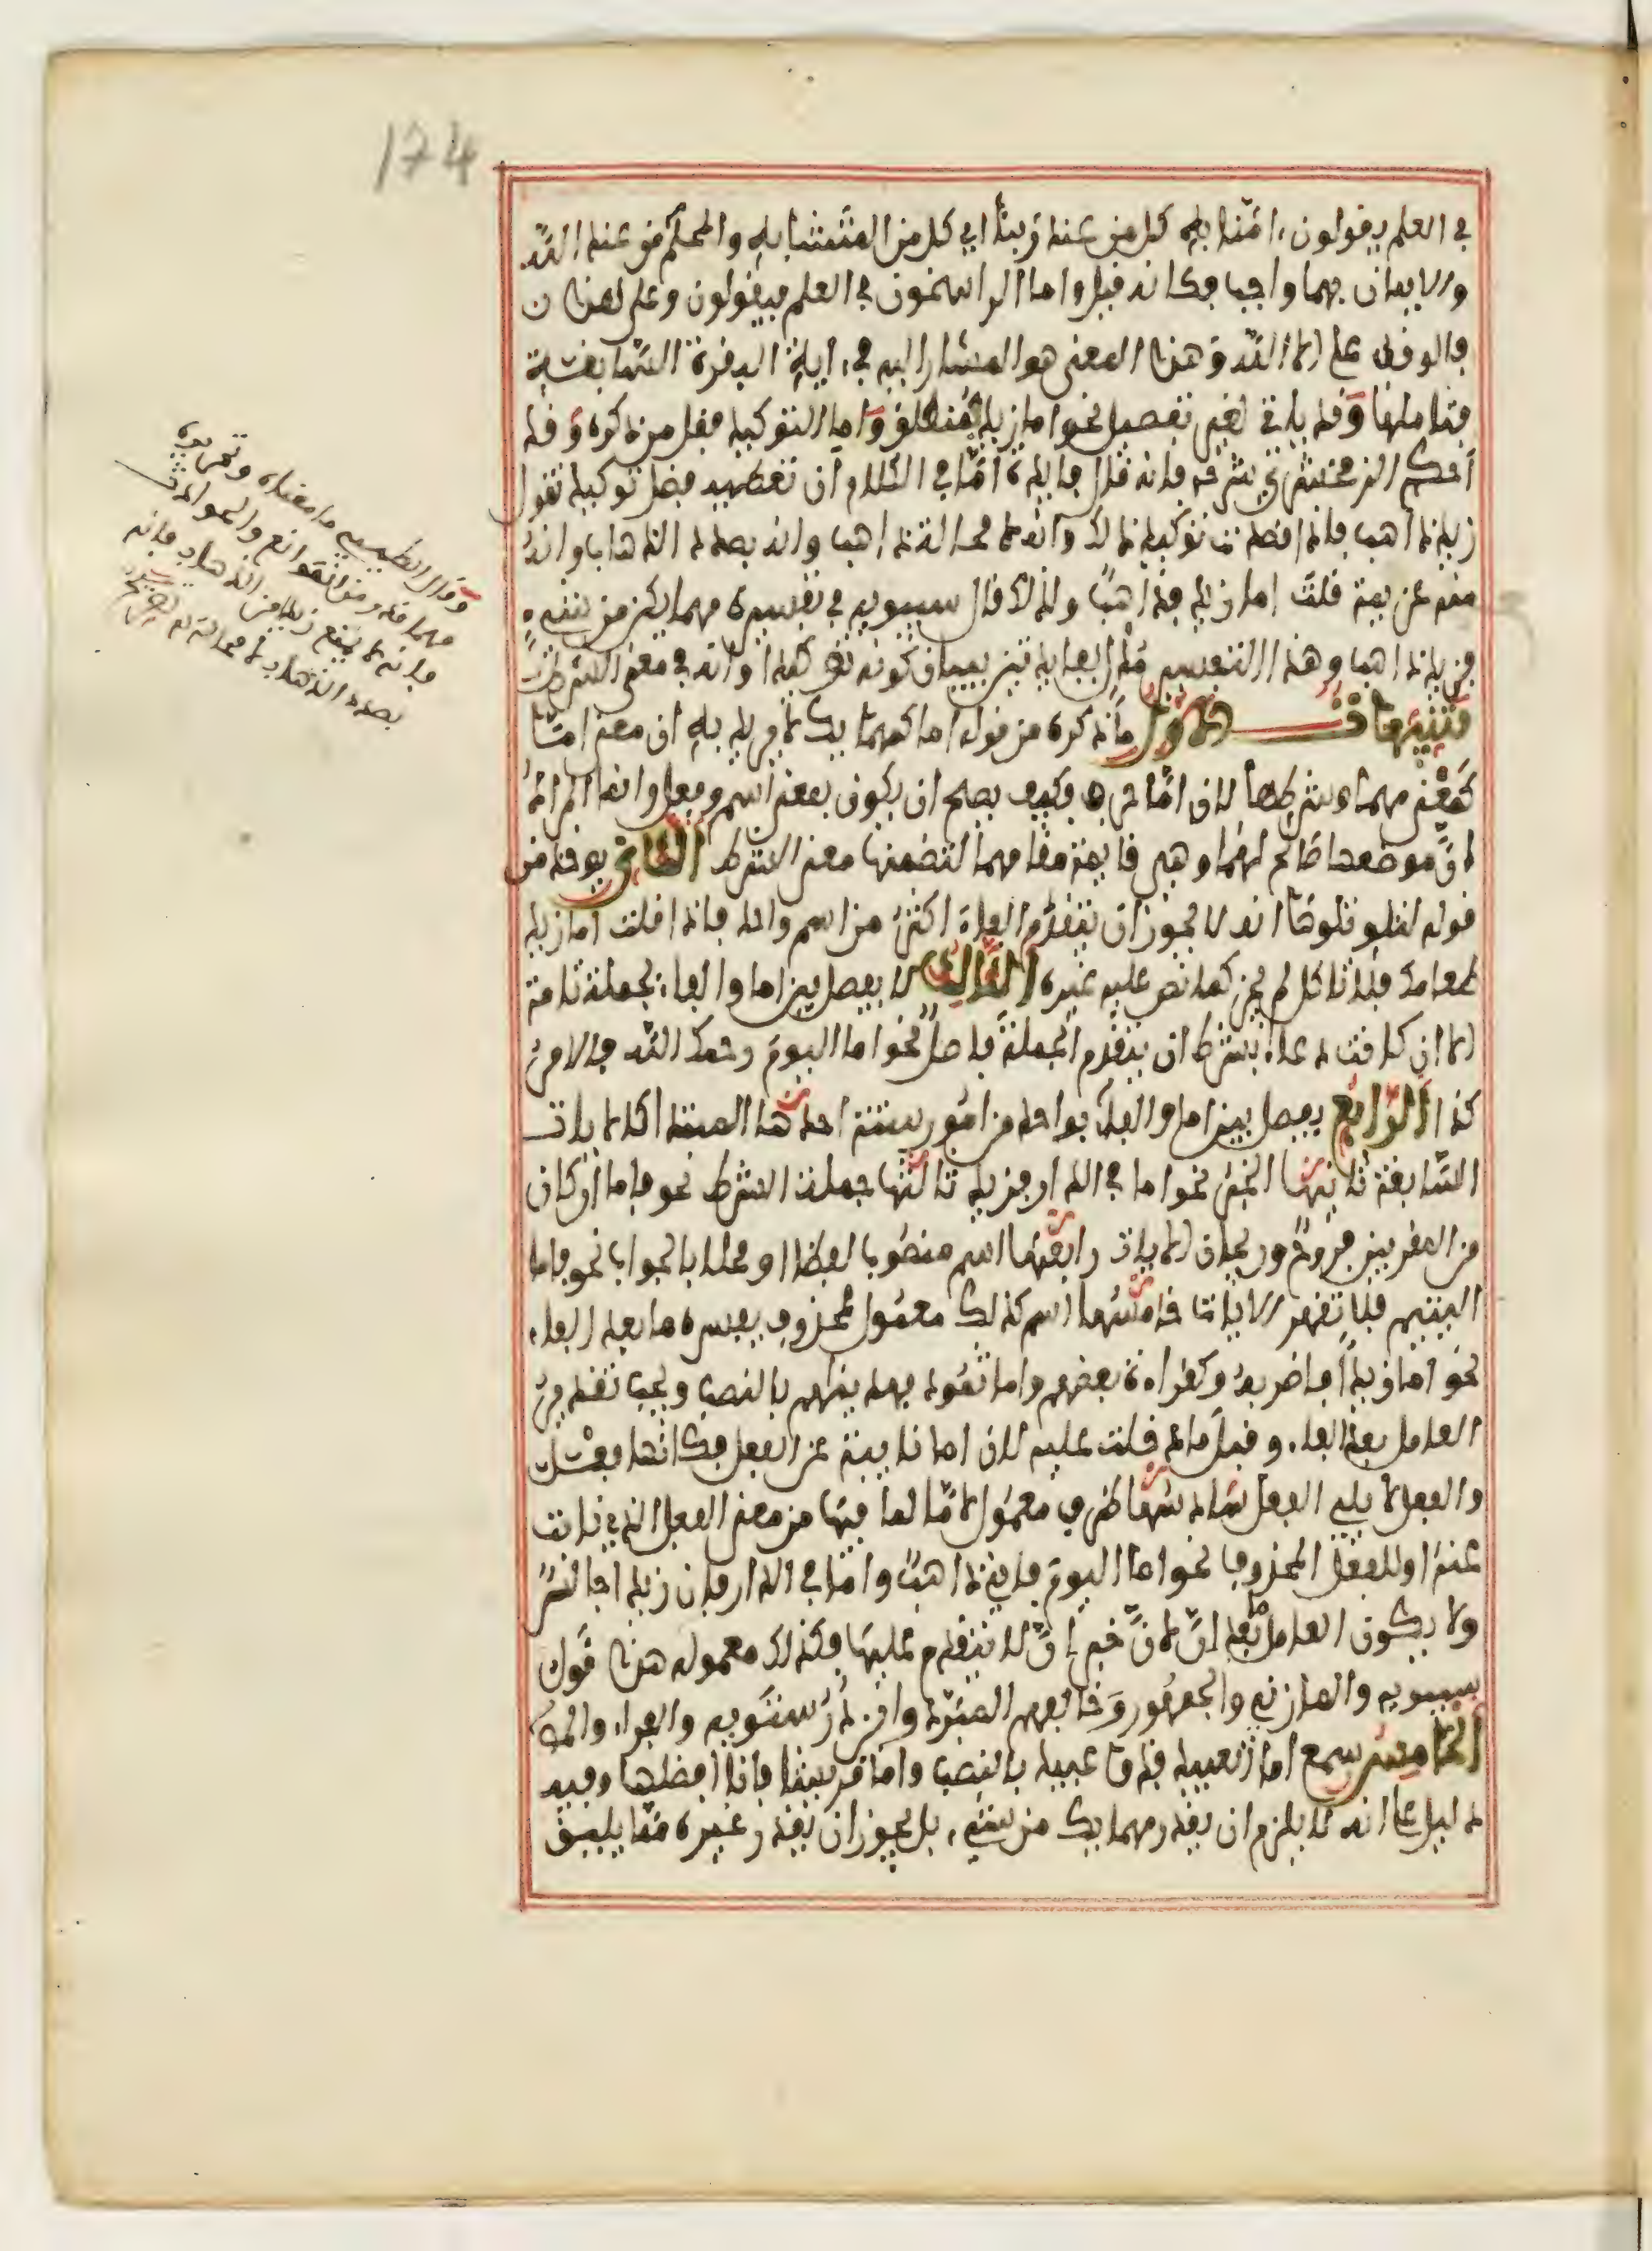 174
في العلم يقولون ءامنا به كل من عند ربنا اي كل من المتشابه والمحكم من عند الله
والايمان بهما واجب فكانه قيل واما الراسخون في العلم فيقولون وعلى هذا
فالوقف على الا الله وهذا المعنى هو المشار اليه في ءاية البقرة السابقة
فتاملها وقد ياتي لغير تفصيل نحو اما زيد فمنطلق واما التوكيد فقل من ذكره وقد
احكم الزمخشري شرحه فانه قال فايدة اما في الكلام ان تعطيه فضل توكيد تقول
زيد ذاهب فاذا قصدت توكيد ذلك وانه لا محالة ذاهب وانه بصدد الذهاب وانه
منه عزيمة قلت اما زيد فذاهب ولذلك قال سيبويه في تفسيره مهما يكن من شيء
فزيد ذاهب وهذا التفسير مدل بفايدتين بيان كونه توكيدا وانه في معنى الشرط
تنبيهات الاول ما ذكره من قوله اما كمهما يك لا يريد به ان معنى اما
كمعنى مهما وشرطها لان اما حرف فكيف يصح ان يكون بمعنى اسم وفعل وانما المراد
ان موضعها صالح لهما وهي قايمة مقامهما لتضمنها معنى الشرط الثاني يوخذ من
قوله لتلو تلوها انه لا يجوز ان يتقدم الفاء اكثر من اسم واحد فاذا قلت اما زيد
طعامه فلا تاكل لم يجز كما نص عليه غيره الثالث لا يفصل بين اما والفاء بجملة تامة
الا ان كانت دعاء بشرط ان يتقدم الجملة فاصل نحو اما اليوم رحمك الله فالامر
كذا الرابع يفصل بين اما والفاء بواحد من امور ستة احدها المبتدا كالايات
السابقة ثانيها الخبر نحو اما في الدار فزيد ثالثها جملة الشرط نحو فاما ان كان
من المقربين فروح وريحان الايات رابعها اسم منصوب لفظا او محلا بالجواب نحو فاما
اليتيم فلا تقهر الايات خامسها اسم كذلك معمول لمحذوف يفسره ما بعد الفاء
نحو اما زيدا فاضربه وكقراءة بعضهم واما ثمود فهديناهم بالنصب ويجب تقدير
العامل بعد الفاء وقبل ما دخلت عليه لان اما نايبة عن الفعل فكانها فعل
والفعل لا يلي الفعل سادسها ظرف معمول لاما لما فيها من معنى الفعل الذي نابت
عنه او للفعل المحذوف نحو اما اليوم فاني ذاهب واما في الدار فان زيدا جالس
ولا يكون العامل ما بعد ان لان خبر ان لا يتقدم عليها فكذلك معموله هذا قول
سيبويه والمازني والجمهور وخالفهم المبرد وابن درستويه والفراء
الخامس سمع اما العبيد فذو عبيد بالنصب واما قريشا فانا افضلها وفيه
دليل على انه لا يلزم ان يقدر مهما يك من شيء بل يجوز ان يقدر غيره مما يليق
وقال الطيبي ما معناه
مهما
فانه لا يمنع زيد من الذهاب فانه
بصدد الذهاب لا محالة